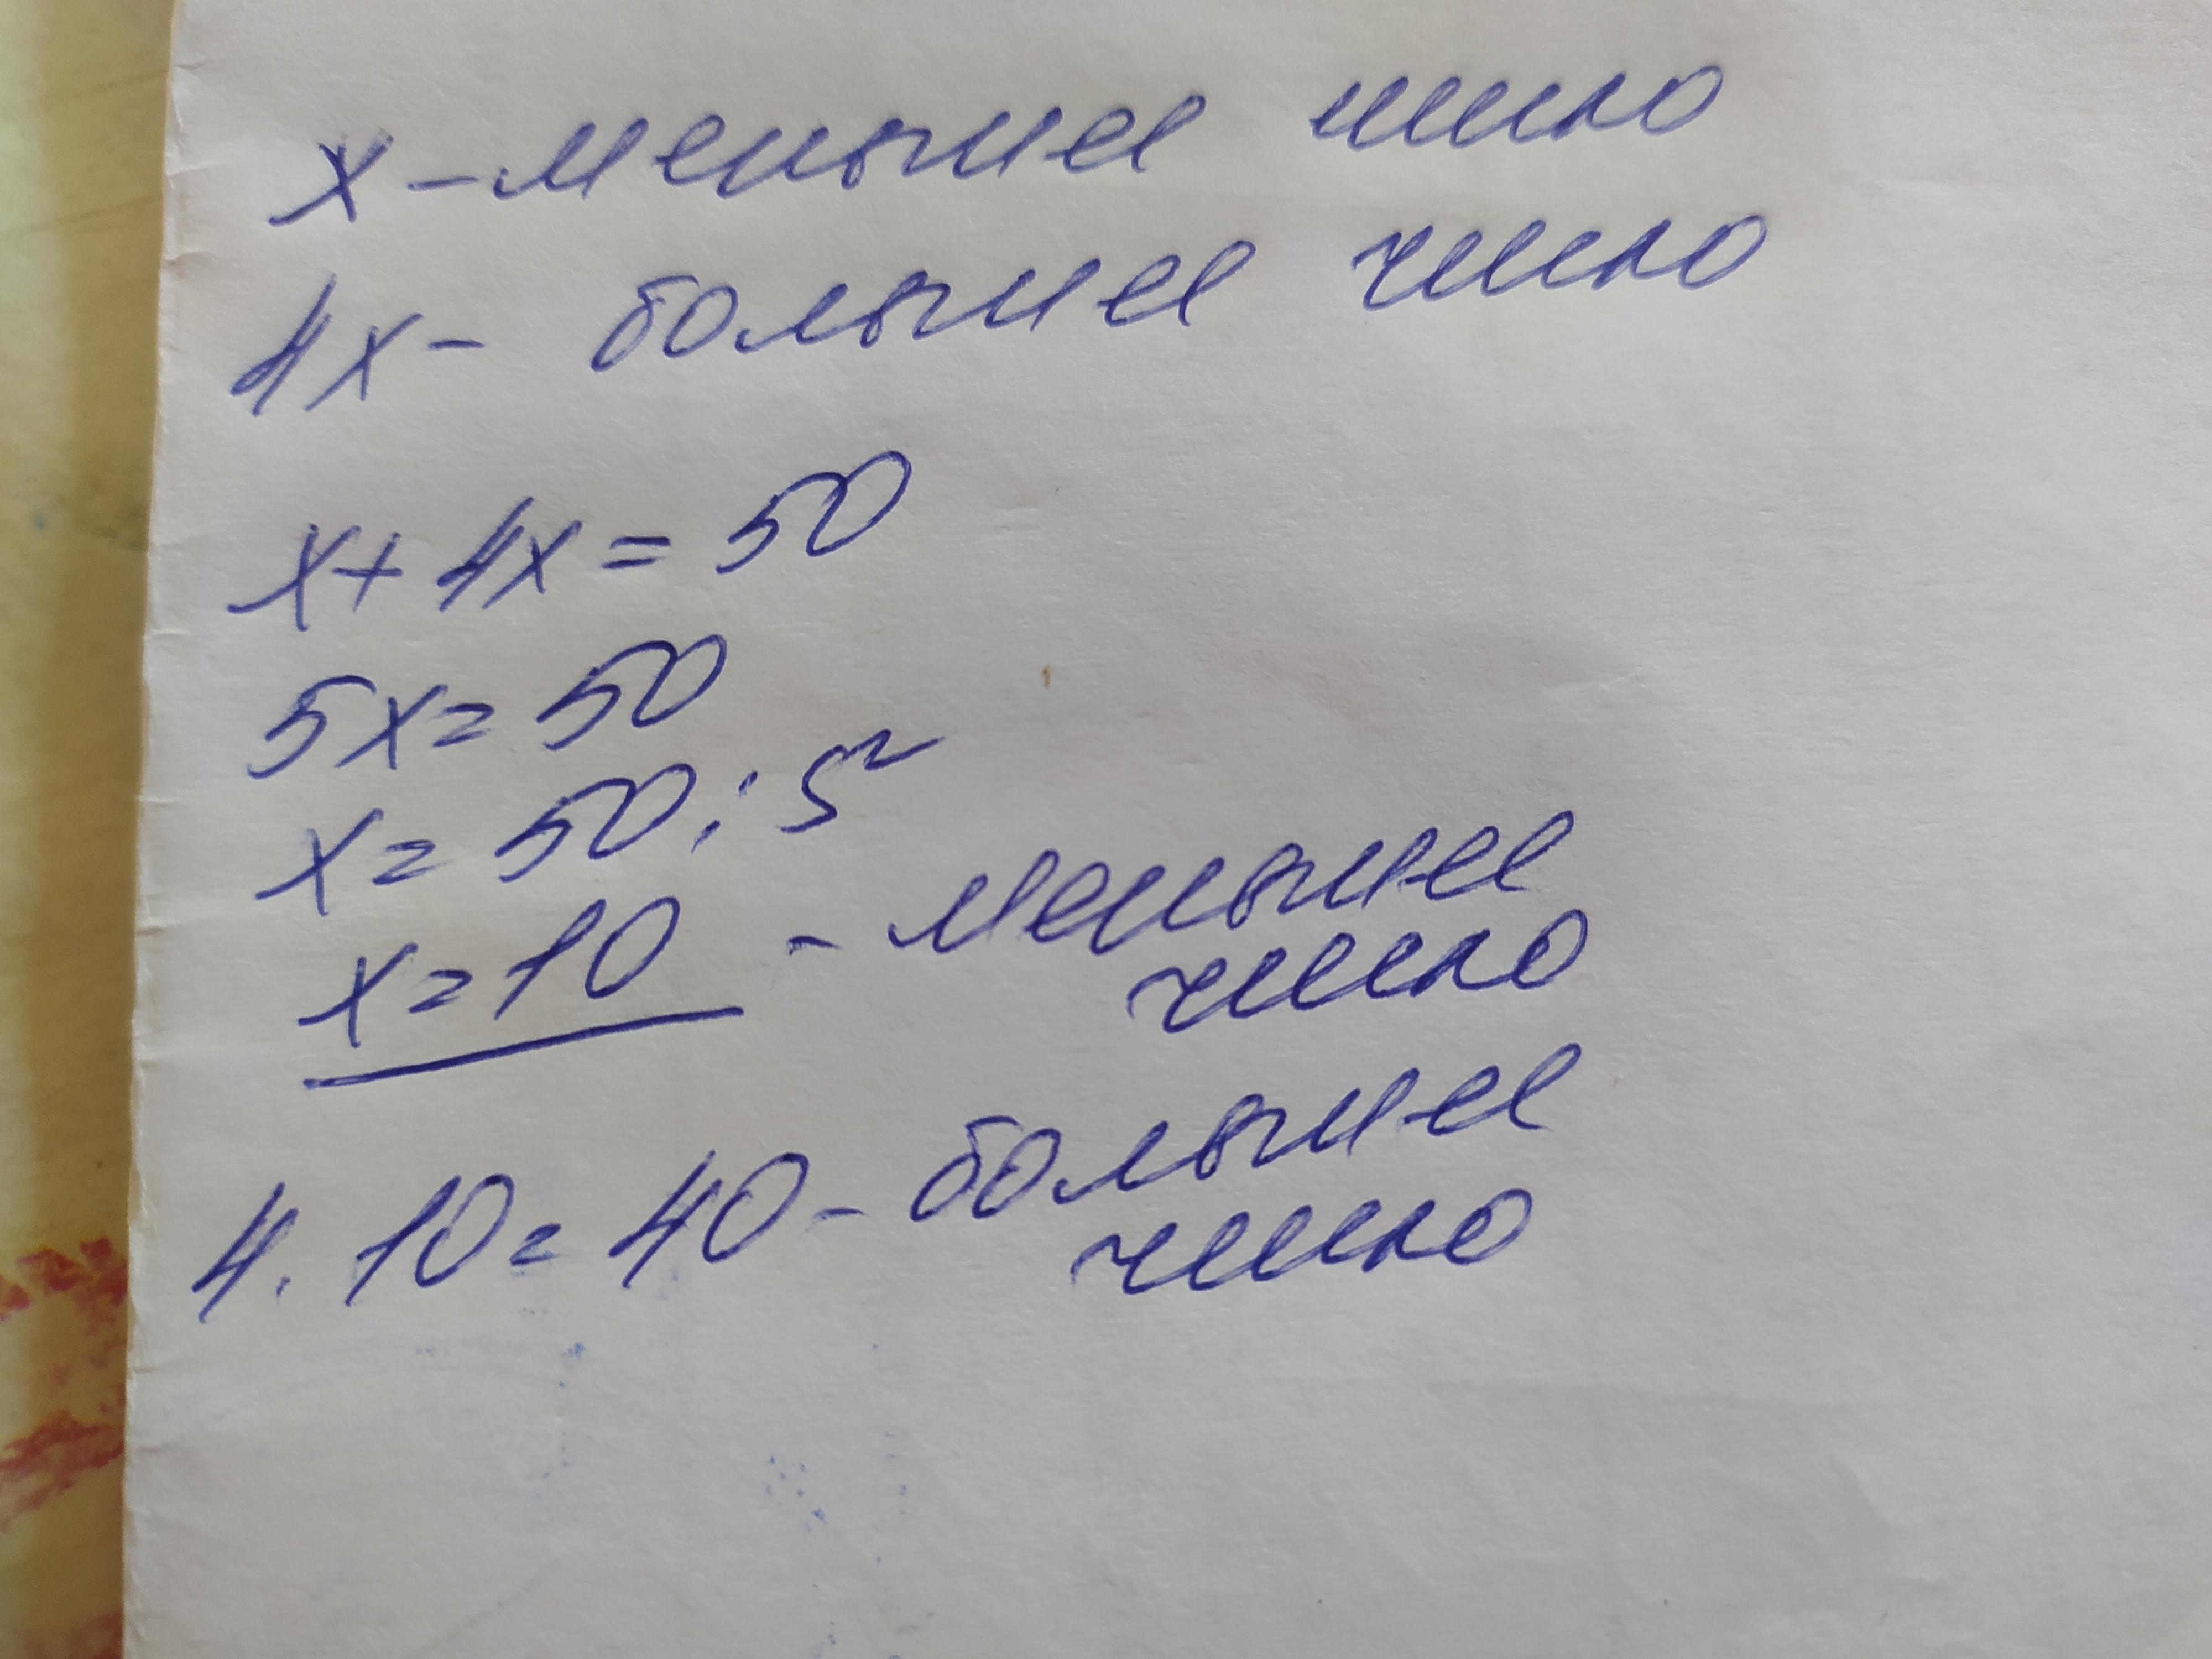 x - меньшее число
4x - большее число
x + 4x = 50
5x = 50
x = 50 : 5
x = 10 - меньшее
число
4 . 10 = 40 - большее
число